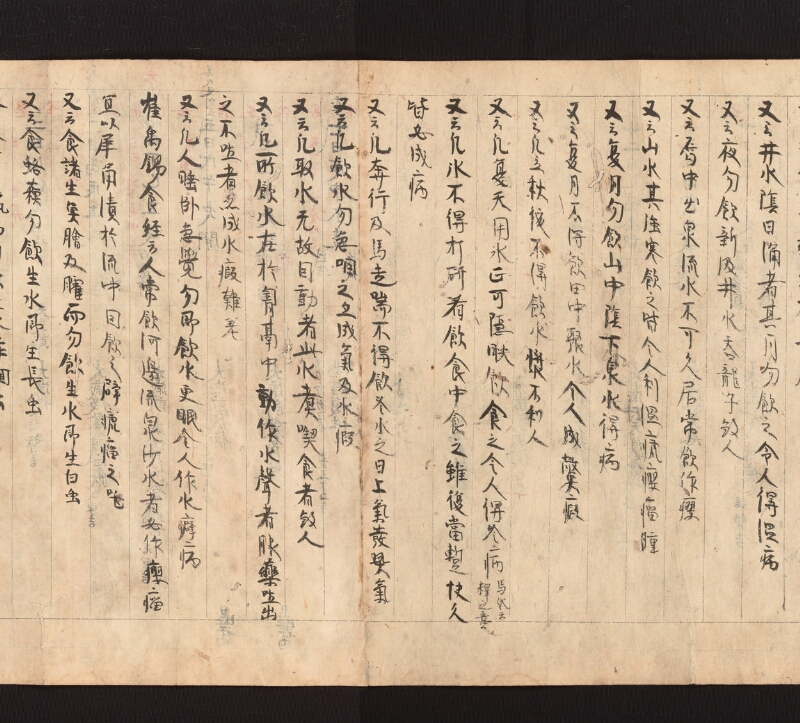 又云井水陰日涌者其月勿飲之令人得温病
又云夜勿飲新汲井水吞龍子敓人
又云山中出泉流水不可久居常飲作癭
又云山水其強寒飲之皆令人利温瘧癭瘤腫
又云夏月勿飲山中陰下泉水得病
又云夏月不得飲田中聚水令人成
又云凡立秋後不得飲水漿不利人
又云凡夏天用氷正可隱映飲食之令人得冬病
又云凡氷不得打研着飲食中食之雖復當暫快久
皆必成病
又云凡奔行及馬走喘不得飲冷水之日上氣發熱氣
又云凡飲水勿急咽之久成氣及水瘕
又云凡取水无故自動者此水煮喫食者敓人
又云凡所飲水在於胷鬲中動作水聲者服藥吐出
之不吐者忽成水瘕難差
又云凡人睡卧急覺勿即飲水更眠令人作水癖病
崔禹錫食經云人常飲河邊流泉沙水者必作癭瘤
宜以犀角漬於流中因飲之辟瘧瘤之
又云食諸生魚膾及臛而勿飲生水即生白虫
又云食蛞蝓勿飲生水即生長虫